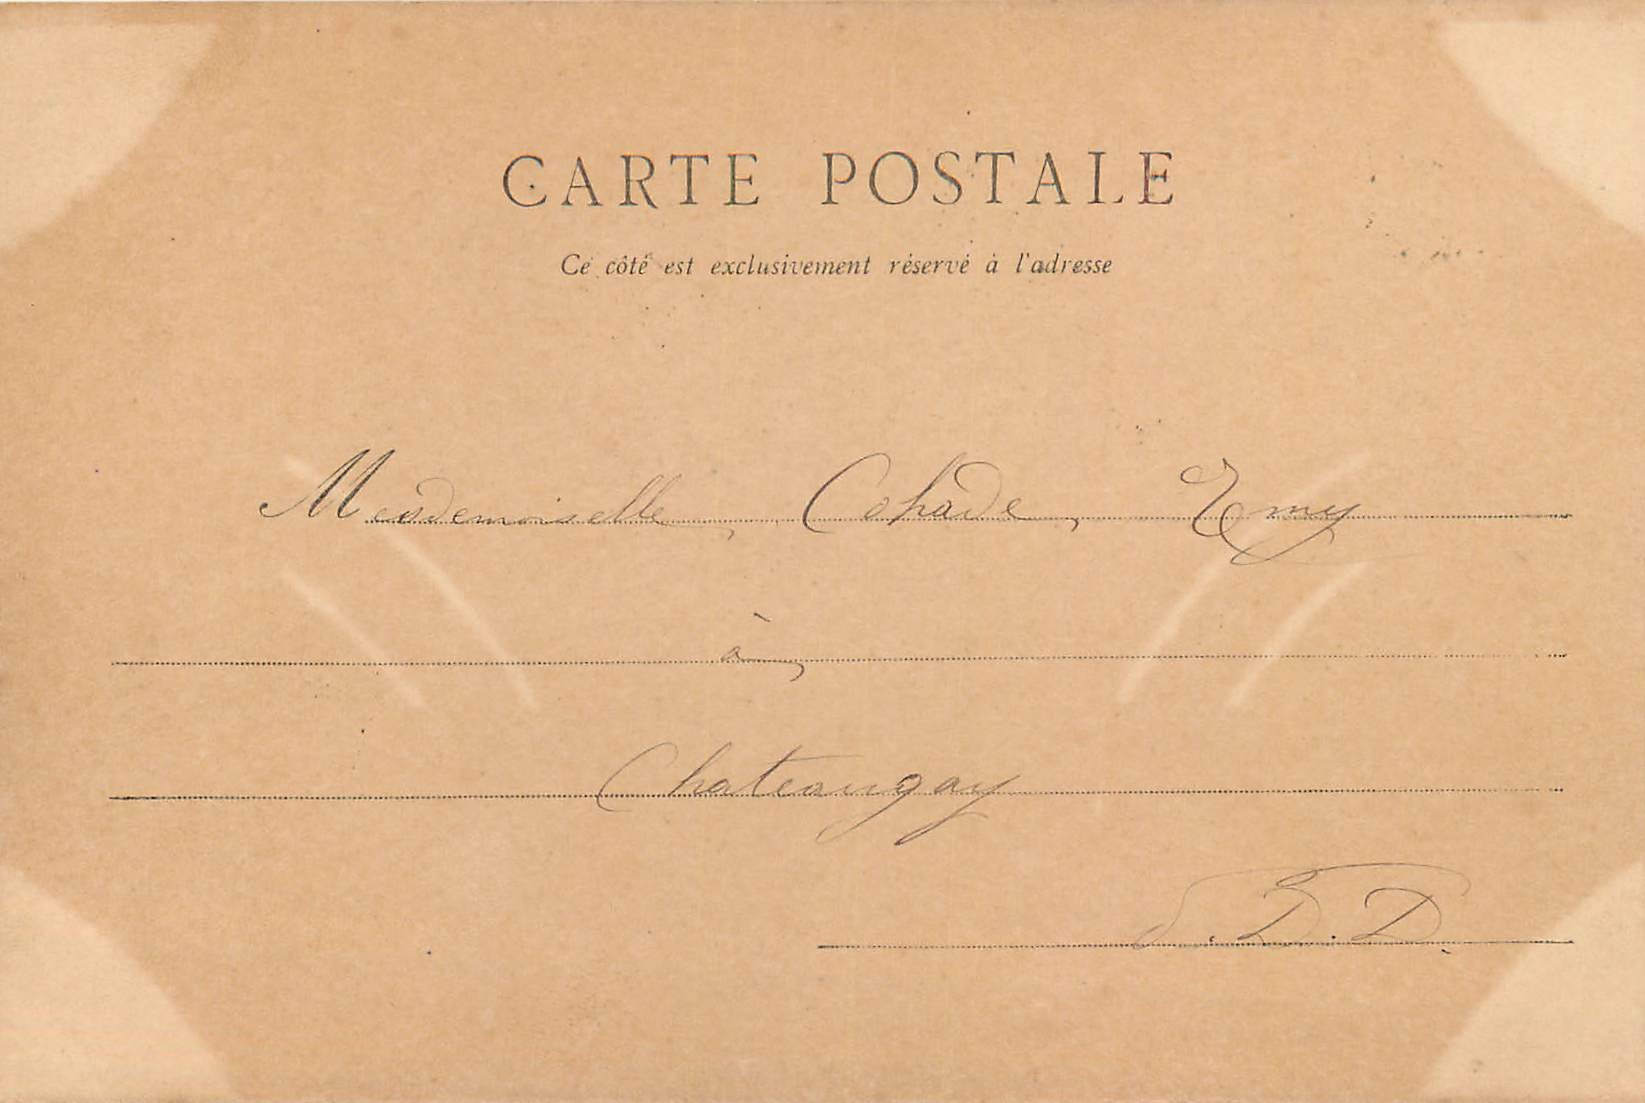 CARTE POSTALE
Ce côté est exclusivement réservé à l'adresse
Mademoiselle, Cohade, Emy
à,
Chateaugay
P.D.D.